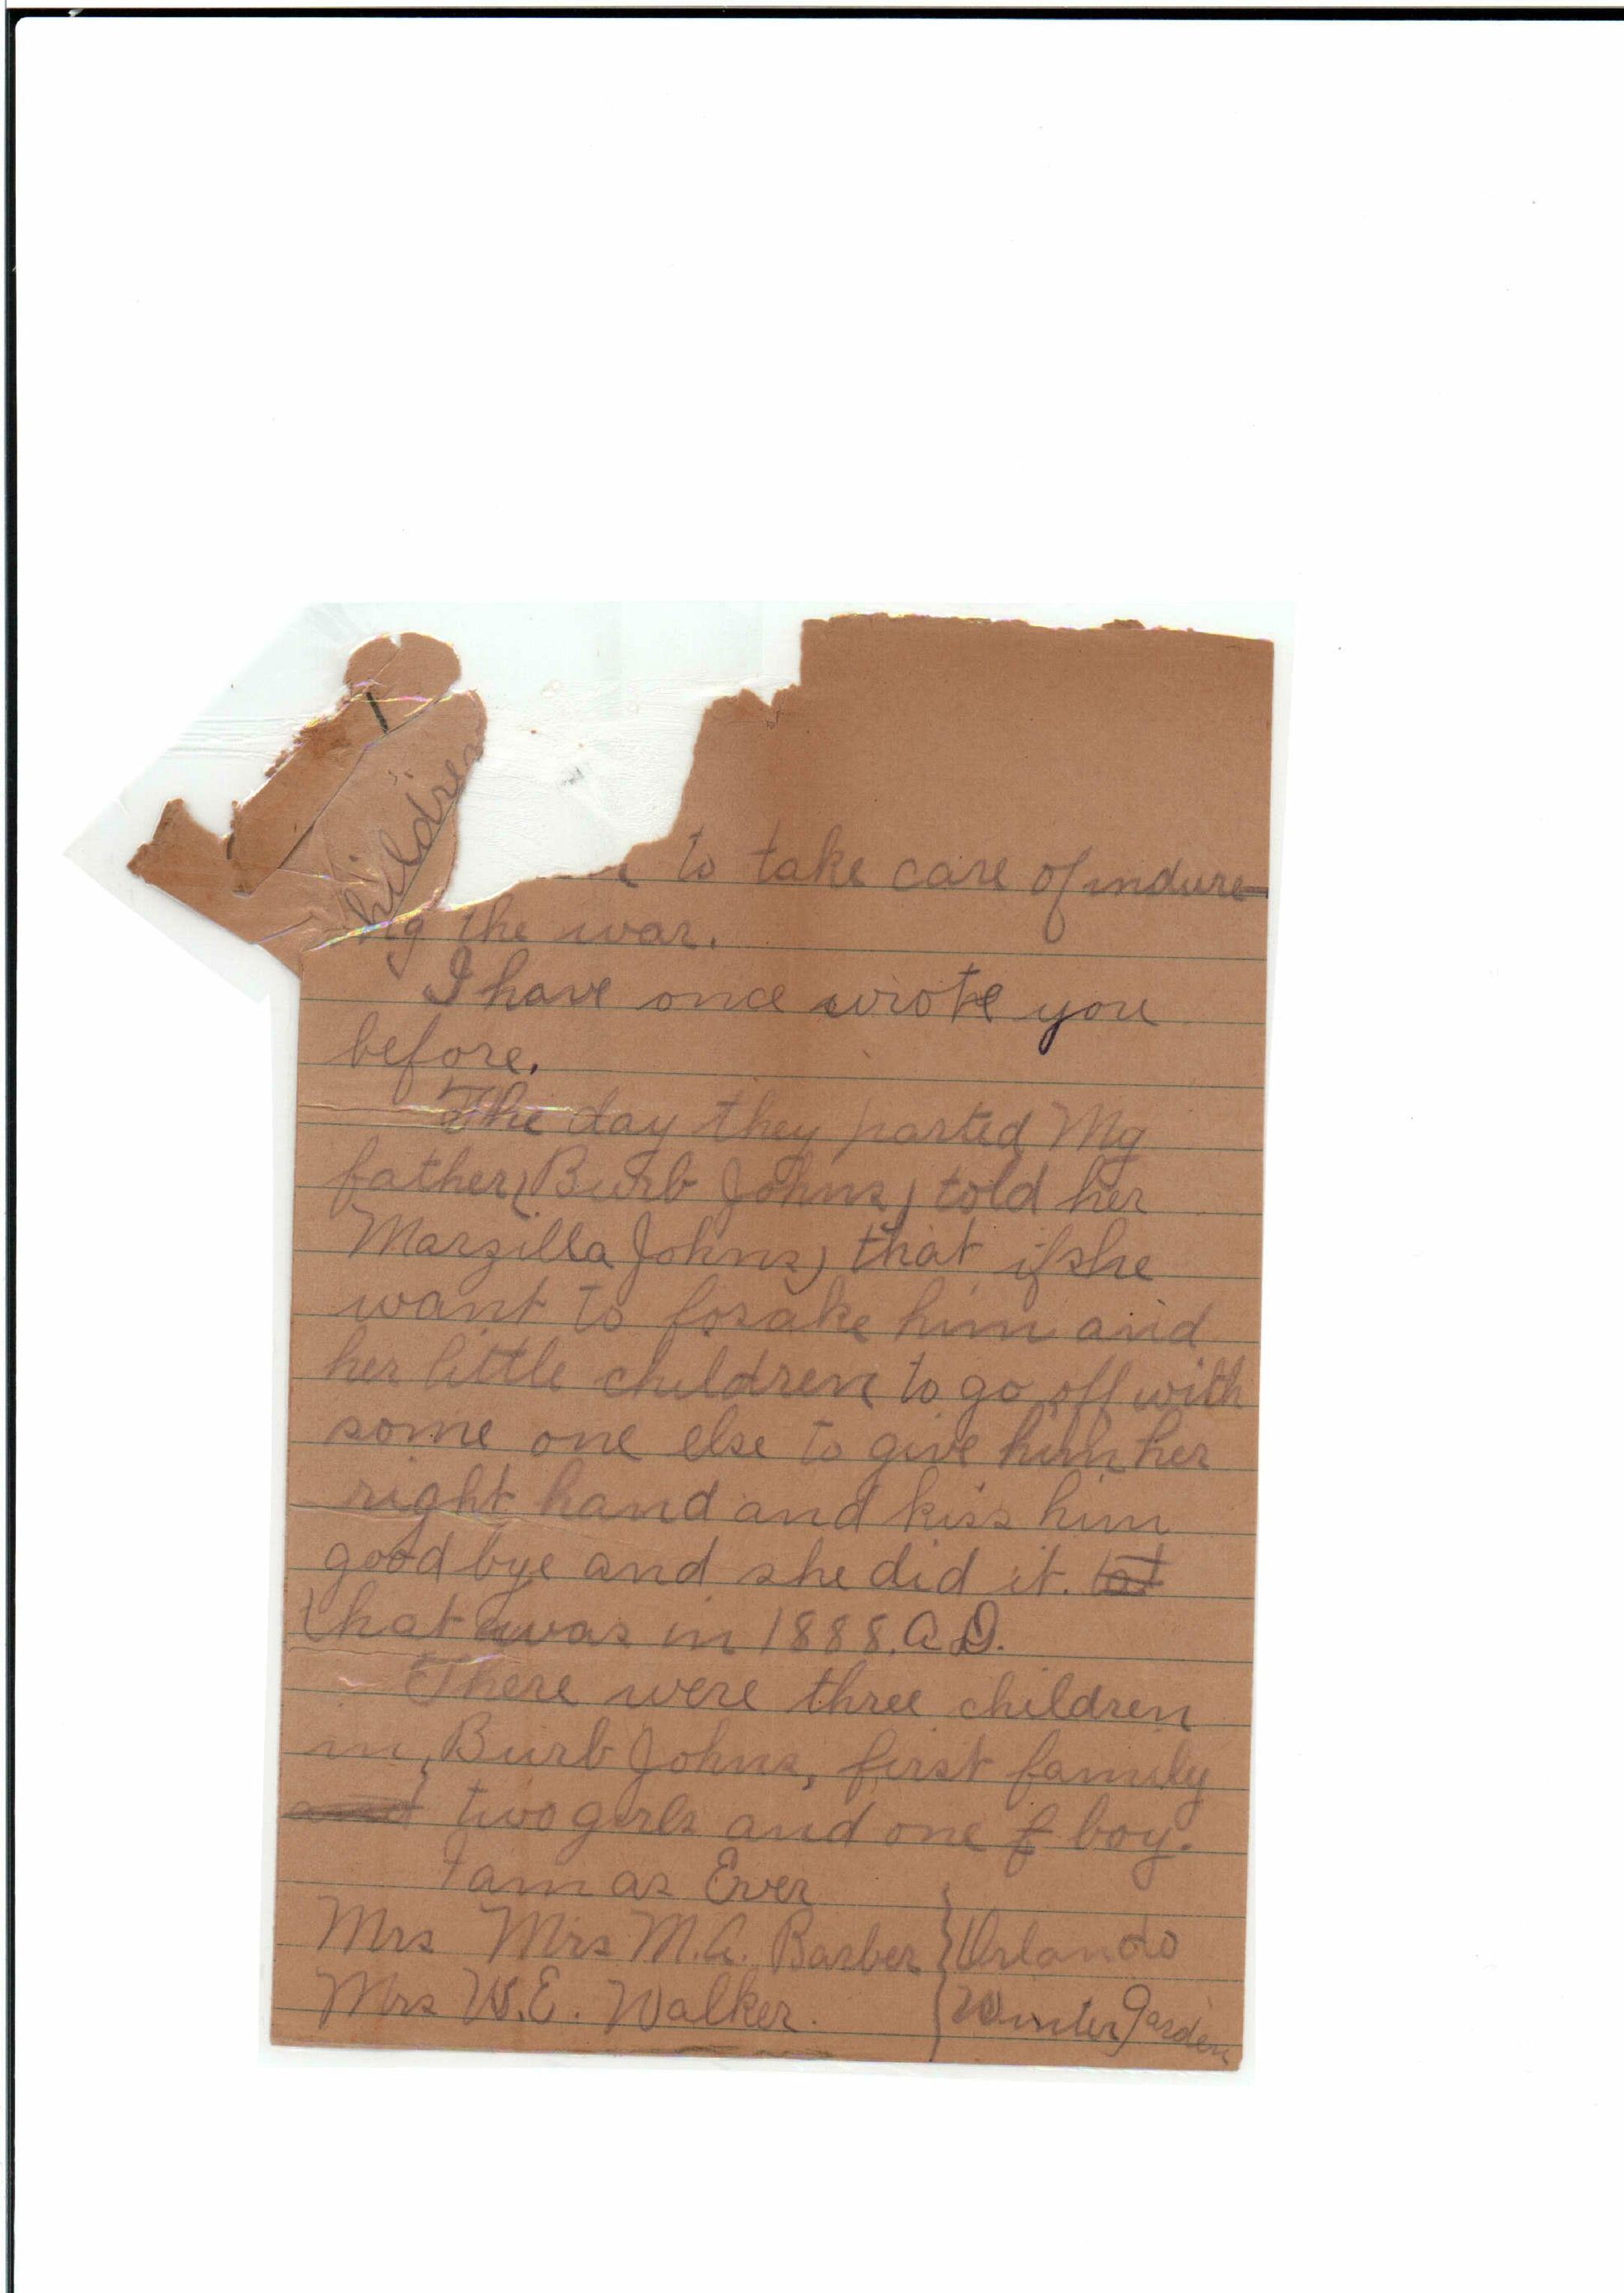 children
to take care of indure-
ing the war.
I have once wrote you
before.
The day they parted My
father, (Burb Johns) told her
Marzilla Johns) that if she
want to forsake him and
her little children to go off with
some one else to give him her
right hand and kiss him
good bye and she did it.
that was in 1888. A.D.
There were three children
in, Burb Johns, first family
two girls and one boy.
I am as Ever
Mrs Mrs M.A. Barber } Orlando
Mrs W.E. Walker. { Winter Garden